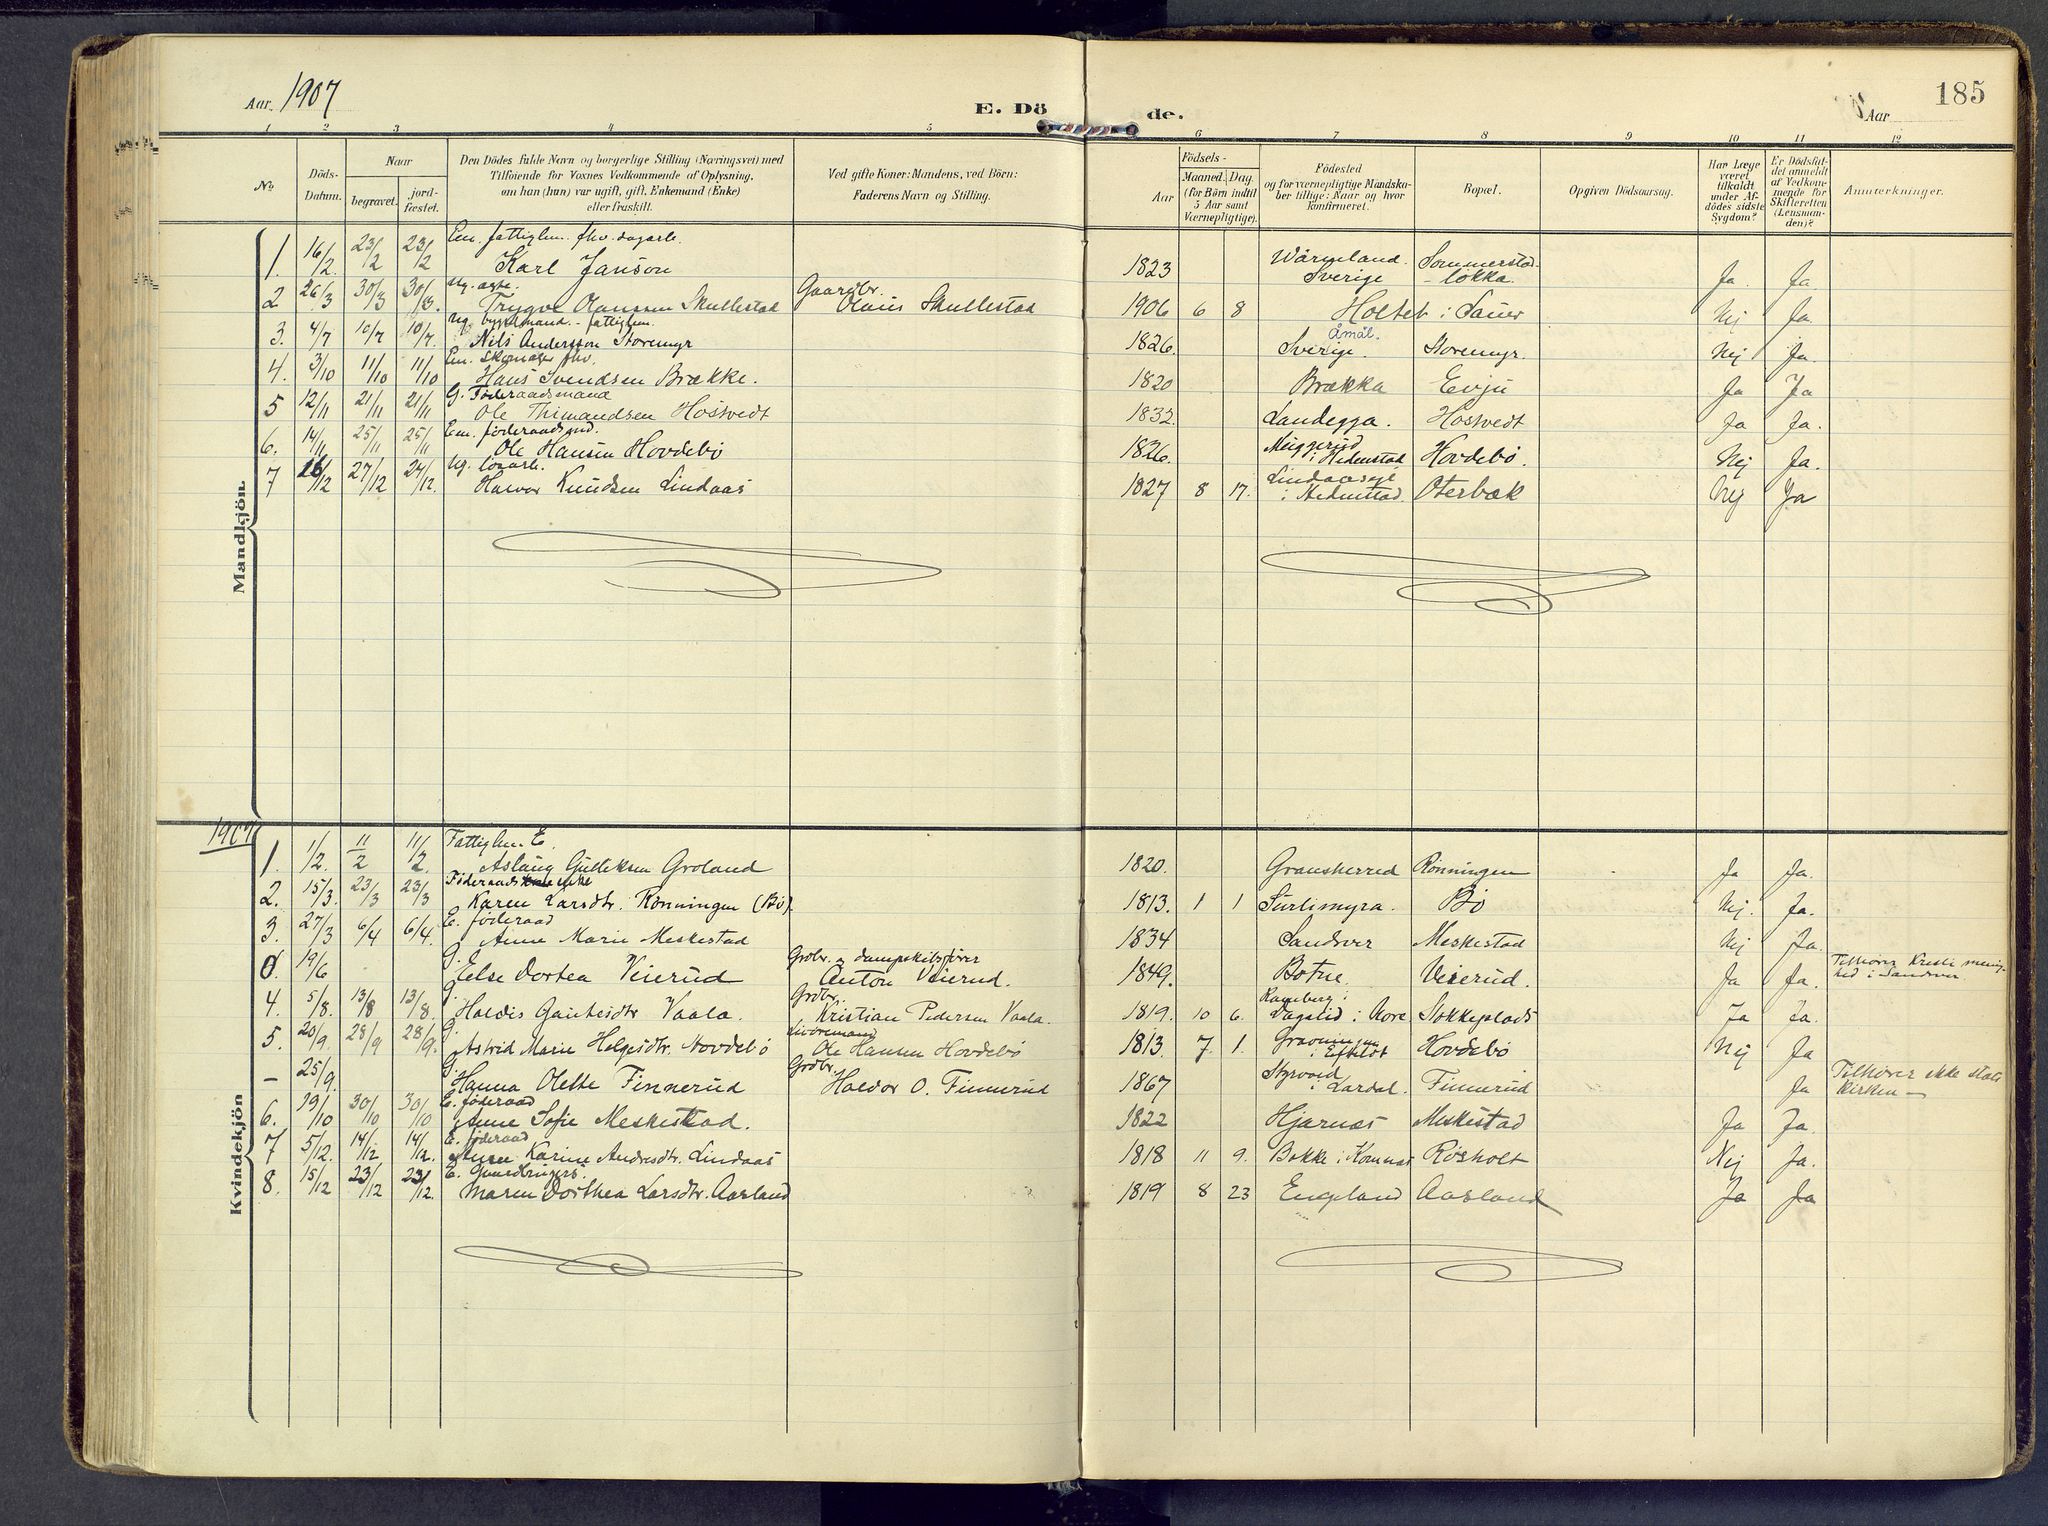 Aar. 1907
E. Dö
de.
Aar
185
1 2 3 4 5 6 7 8 9 10 11 12
No.
Döds-Datum.
Naar
begravet.
jord-fæstet.
Den Dödes fulde Navn og borgerlige Stilling (Næringsvei) med
Tilföiende for Voxnes Vedkommende af Oplysning,
om han (hun) var ugift, gift, Enkemand (Enke)
eller fraskilt.
Ved gifte Koner: Mandens, ved Börn:
Faderens Navn og Stilling.
Födsels-
Aar
Maaned. Dag.
(for Börn indtil
5 Aar samt
Værnepligtige).
Födested
og for værnepligtige Mandska-
ber tillige: Naar og hvor
konfirmeret.
Bopæl.
Opgiven Dödsaarsag.
Har Læge
været
tilkaldt
under Af-
dödes sidste
Sygdom?
Er Dödsfal-
det anmeldt
af Vedkom-
mende for
Skifteretten
(Lensman-
den)?
Anmærkninger.
Mandkjön
Em. fattiglem. fhv. dagarb.
1. 16/2 23/2 23/2 Karl Janson 1823 Wärmland. Sverige Sommerstad-løkka. Ja. Ja.
Ug. ægte. Gaardbr.
2 26/3 30/3 30/3 Trygve Olaussen Skullestad Olaus Skullestad 1906 6 8 Holtet i Sauer Nej Ja.
Ug. - fattiglem.
3. 4/7 10/7 10/7 Nils Andersson Storemyr 1826. Åmål. Sverige. Storemyr. Nej Ja.
Em. Skomager fhv.
4. 3/10 11/10 11/10 Hans Svendsen Brække. 1820 Brække Evju Ja Ja
G. Föderaadsmand
5 12/11 21/11 21/11 Ole Thimandsen Hostvedt 1832. Landegga. Hostvedt Ja Ja.
Em. föderaadsmd.
6. 14/11 25/11 25/11 Ole Hansen Hovdebö 1826. i Hedenstad Hovdebö. Nej Ja.
Ug.
7 16/12 27/12 27/12 Halvor Knudsen Lindaas 1827 8 17. Lindaaseje i Hedenstad. Oterbæk Nej Ja
1907
Kvindekjön
Fattiglem. E.
1. 1/2. 11/2 11/2. Aslaug Gulliksen Groland 1820. Gransherred Rönningen Ja Ja.
Föderaads enke
2. 15/3. 23/3 23/3 Karen Larsdtr. Rönningen (Bö). 1813. 1 1 Surlimyra. Bö Nej. Ja.
E. föderaad
3. 27/3 6/4 6/4. Anne Marie Meskestad 1834 Sandsver Meskestad Nej Ja.
G. Grdbr. og dampskibsförer
0. 19/6 Else Dortea Veierud Anton Veierud. 1849. Botne. Veierud. Ja Ja. Tilhörer Kristi menig-hed i Sandsver
G. Grdbr.
4. 5/8. 13/8 13/8. Haldis Gunleidtr Vaala. Kristian Pedersen Vaala. 1819. 10 6. Dagslid i Nore Sokkeplads Ja Ja.
G.
5. 20/9. 28/9 28/9. Astrid Marie Helgesdtr. Hovdebö Ole Hansen Hovdebö 1813. 7. 1. i Efteldt Hovdebö Nej Ja
G. Grdbr.
- 25/9. Hanna Olette Finnerud Haldor O. Finnerud 1867 Styrvold i Lardal. Finnerud Ja Tilhörer ikke stats kirken -
E. föderaad
6. 19/10 30/10 30/10 Anne Sofie Meskestad. 1822 Hjarnæs Meskestad Ja Ja.
E. föderaad
7 5/12. 14/12 14/12. Anne Karine Andresdtr. Lindaas 1818 11 9. Bakke i Komnæs Rösholt Nej Ja.
E. Gaardbrugers.
8. 15/12 23/12 23/12 Maren Dorthea Larsdtr. Aasland 1819 8 23 England Aasland Ja Ja